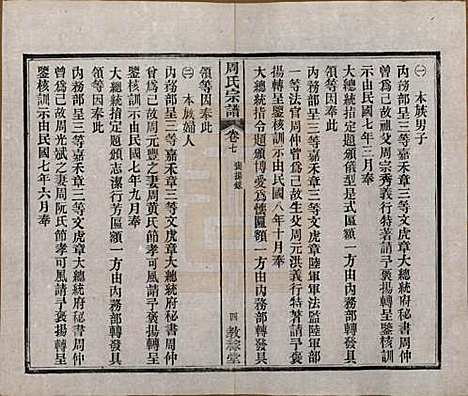 ㊀ 本族男子
內務部呈三等嘉禾章三等文虎章大總統府秘書周仲
曾爲已故祖父周宗秀義行特著請予褒揚轉呈鑒核訓
示由民國七年三月奉
大總統指定題頒儀型是式匾額一方由內務部轉發具
領等因奉此
一等法官周仲曾爲已故生父周元洪義行特著請予褒
揚轉呈鑒核訓示由民國八年十月奉
大總統指令題頒博愛爲懷匾額一方由內務部轉發具
周氏宗譜
卷七
褒揚錄
四
敦睦堂
領等因奉此
㊁ 本族婦人
內務部呈三等嘉禾章三等文虎章大總統府秘書周仲
曾爲已故周元豐之妻周黃氏節孝可風請予褒揚轉呈
鑒核訓示由民國七年九月奉
大總統指定題頒志潔行芳匾額一方由內務部轉發具
領等因奉此
內務部呈三等嘉禾章三等文虎章大總統府秘書周仲
曾爲已故周光斌之妻周阮氏節孝可風請予褒揚轉呈
鑒核訓示由民國七年六月奉